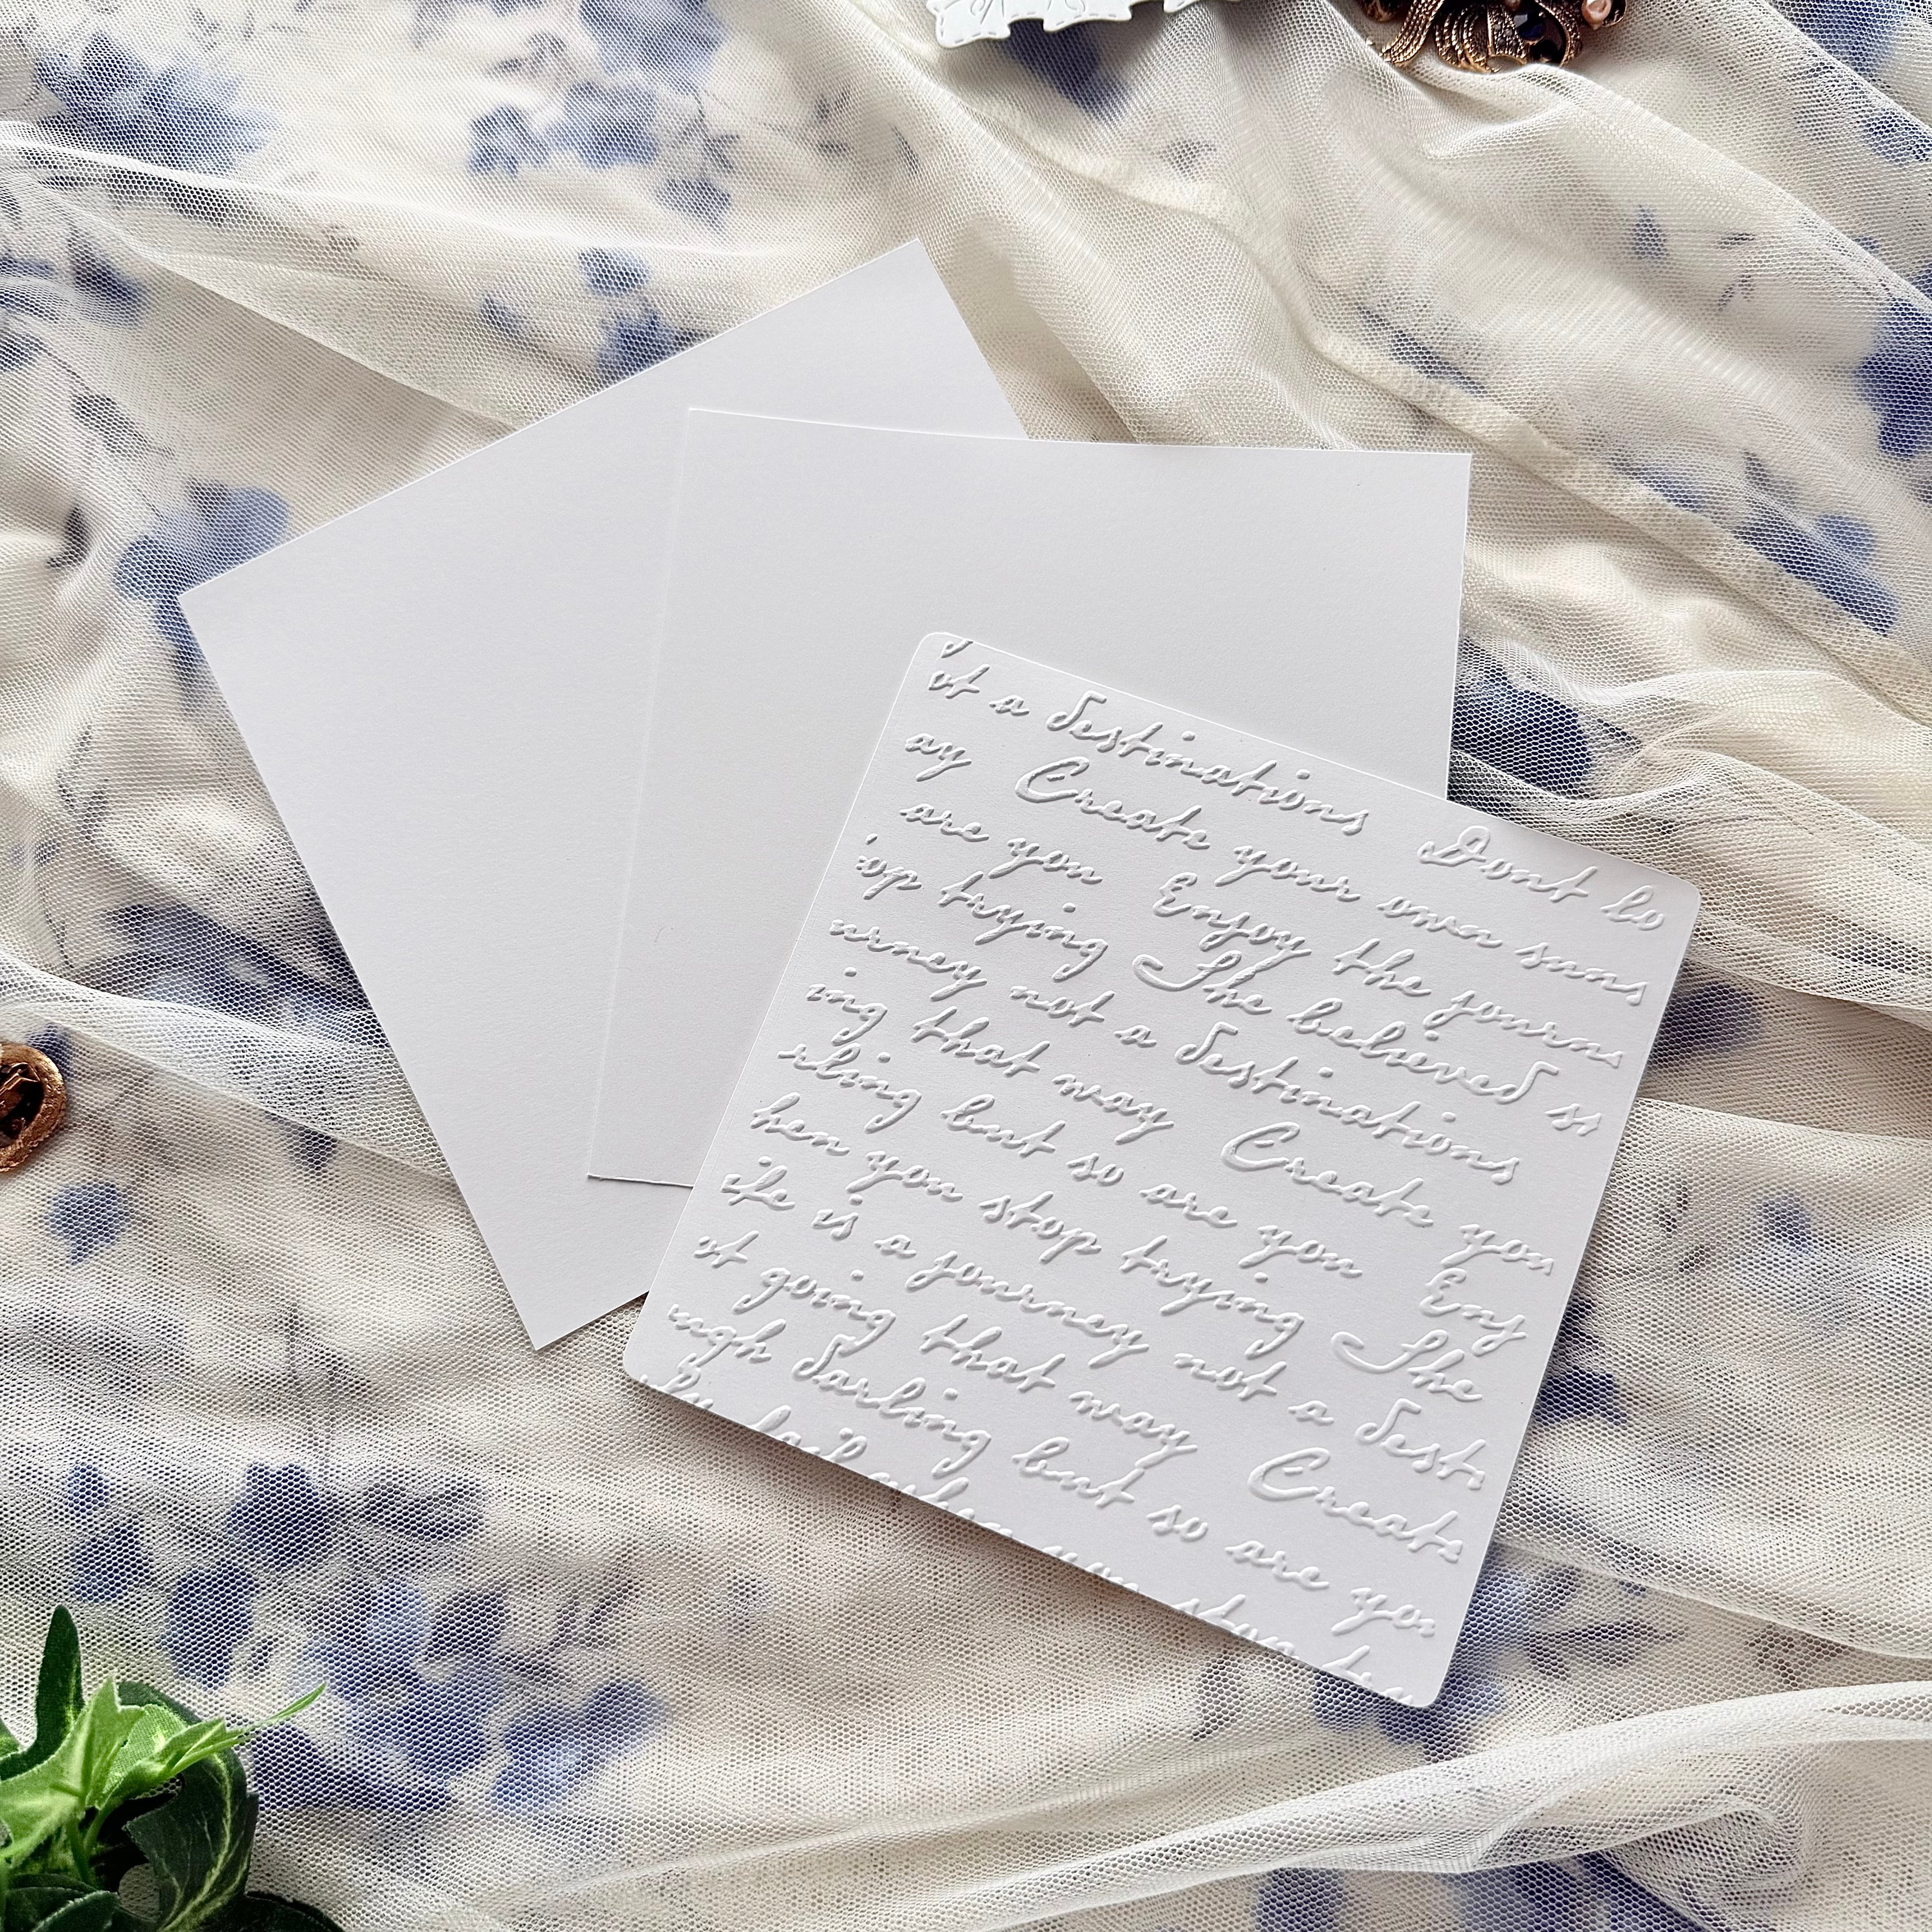 ot a destinations Dont lo
ay Create your own suns
are you Enjoy the journ
op trying She believed s
urney not a destinations
ing that way Create you
rling but so are you Enj
hen you stop trying She
ife is a journey not a desti
st going that way Create
ugh darling but so are you
fail when you stop